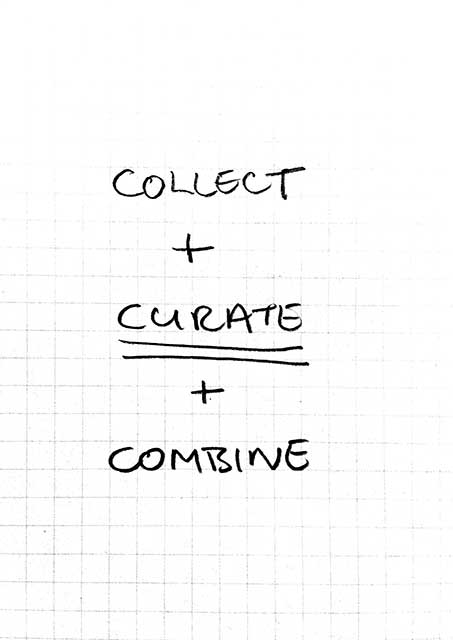 COLLECT
+
CURATE
+
COMBINE